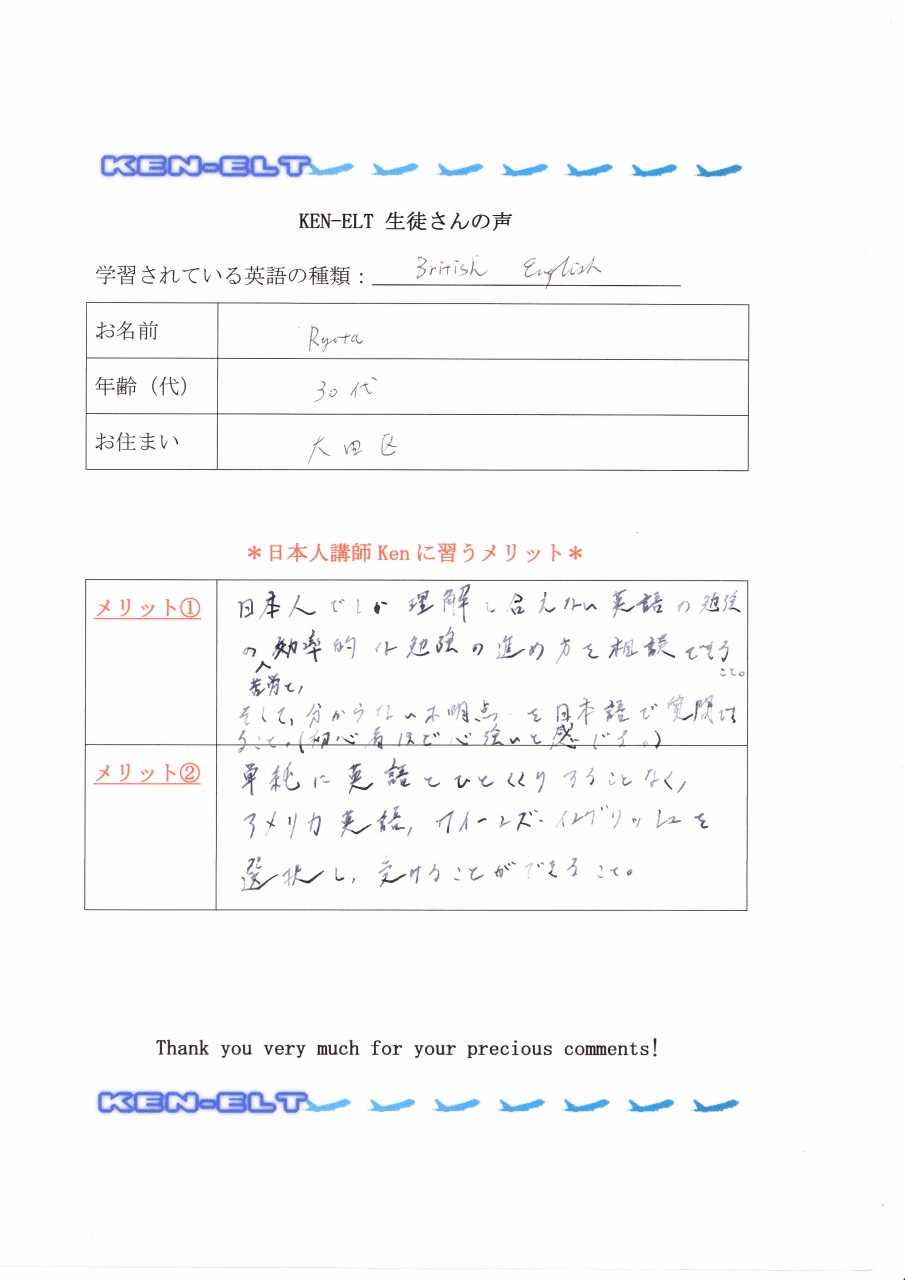 KEN-ELT
KEN-ELT 生徒さんの声
学習されている英語の種類： British English
お名前 Ryota
年齢（代） 30代
お住まい 大田区
＊日本人講師Kenに習うメリット＊
メリット① 日本人でしか理解し合えない英語の勉強
の 効率的な勉強の進め方を相談できる
苦労と, こと。
そして, 分からない不明点 を日本語で質問出
ること。(初心者ほど心強いと感じる。)
メリット② 単純に英語とひとくくりすることなく,
アメリカ英語, クイーンズ・イングリッシュを
選択し, 受けることができること。
Thank you very much for your precious comments!
KEN-ELT